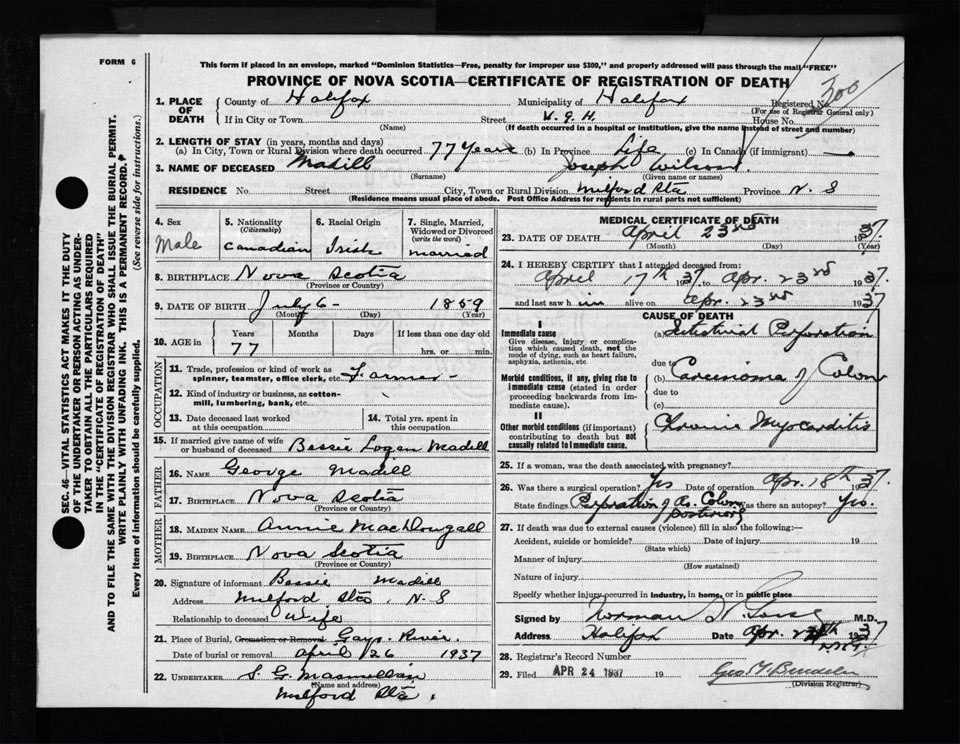 FORM 6
This form if placed in an envelope, marked "Dominion Statistics—Free, penalty for improper use $300," and properly addressed will pass through the mail "FREE"
PROVINCE OF NOVA SCOTIA—CERTIFICATE OF REGISTRATION OF DEATH
SEC. 46—VITAL STATISTICS ACT MAKES IT THE DUTY
OF THE UNDERTAKER OR PERSON ACTING AS UNDER-
TAKER TO OBTAIN ALL THE PARTICULARS REQUIRED
IN THE "CERTIFICATE OF REGISTRATION OF DEATH"
AND TO FILE THE SAME WITH THE DIVISION REGISTRAR WHO SHALL ISSUE THE BURIAL PERMIT.
WRITE PLAINLY WITH UNFADING INK. THIS IS A PERMANENT RECORD.
Every item of information should be carefully supplied. (See reverse side for instructions.)
1. PLACE OF DEATH County of Halifax Municipality of Halifax Registered No. 300
(For use of Registrar General only)
If in City or Town Street V. G. H. House No.
(Name) (If death occurred in a hospital or institution, give the name instead of street and number)
2. LENGTH OF STAY (in years, months and days)
(a) In City, Town or Rural Division where death occurred 77 Years (b) In Province Life (c) In Canada (if immigrant) —
3. NAME OF DECEASED Madill Joseph Wilson
(Surname) (Given name or names)
RESIDENCE No. Street City, Town or Rural Division Milford Sta Province N. S
(Residence means usual place of abode. Post Office Address for residents in rural parts not sufficient)
4. Sex Male
5. Nationality (Citizenship) Canadian
6. Racial Origin Irish
7. Single, Married, Widowed or Divorced (write the word) Married
8. BIRTHPLACE Nova Scotia
(Province or Country)
9. DATE OF BIRTH July 6 - 1859
(Month) (Day) (Year)
10. AGE in Years 77 Months Days If less than one day old hrs. or min.
OCCUPATION
11. Trade, profession or kind of work as spinner, teamster, office clerk, etc. Farmer
12. Kind of industry or business, as cotton-mill, lumbering, bank, etc.
13. Date deceased last worked at this occupation
14. Total yrs. spent in this occupation
15. If married give name of wife or husband of deceased Bessie Logan Madill
FATHER
16. NAME George Madill
17. BIRTHPLACE Nova Scotia
(Province or Country)
MOTHER
18. MAIDEN NAME Annie MacDougall
19. BIRTHPLACE Nova Scotia
(Province or Country)
20. Signature of informant Bessie Madill
Address Milford Sta, N. S
Relationship to deceased Wife
21. Place of Burial, Cremation or Removal Gays River
Date of burial or removal April 26 1937
22. UNDERTAKER S. G.
(Name and address)
Milford Sta.
MEDICAL CERTIFICATE OF DEATH
23. DATE OF DEATH April 23rd 1937
(Month) (Day) (Year)
24. I HEREBY CERTIFY that I attended deceased from:
April 17th 1937 to Apr. 23rd 1937
and last saw him alive on Apr. 23rd 1937
CAUSE OF DEATH
I
Immediate cause
Give disease, injury or complication which caused death, not the mode of dying, such as heart failure, asphyxia, asthenia, etc.
(a) Perforation
due to
Morbid conditions, if any, giving rise to immediate cause (stated in order proceeding backwards from immediate cause).
(b) Carcinoma of Colon
due to
(c)
II
Other morbid conditions (if important) contributing to death but not causally related to immediate cause.
Chronic Myocarditis
25. If a woman, was the death associated with pregnancy?
26. Was there a surgical operation? Yes Date of operation Apr. 18th 1937
State findings Perforation of As. Colon posteriorly Was there an autopsy? Yes.
27. If death was due to external causes (violence) fill in also the following:—
Accident, suicide or homicide? Date of injury 19
(State which)
Manner of injury
(How sustained)
Nature of injury
Specify whether injury occurred in industry, in home, or in public place
Signed by Norman M.D.
Address Halifax Date Apr. 24th 1937
28. Registrar's Record Number
29. Filed APR 24 1937 19
(Division Registrar)